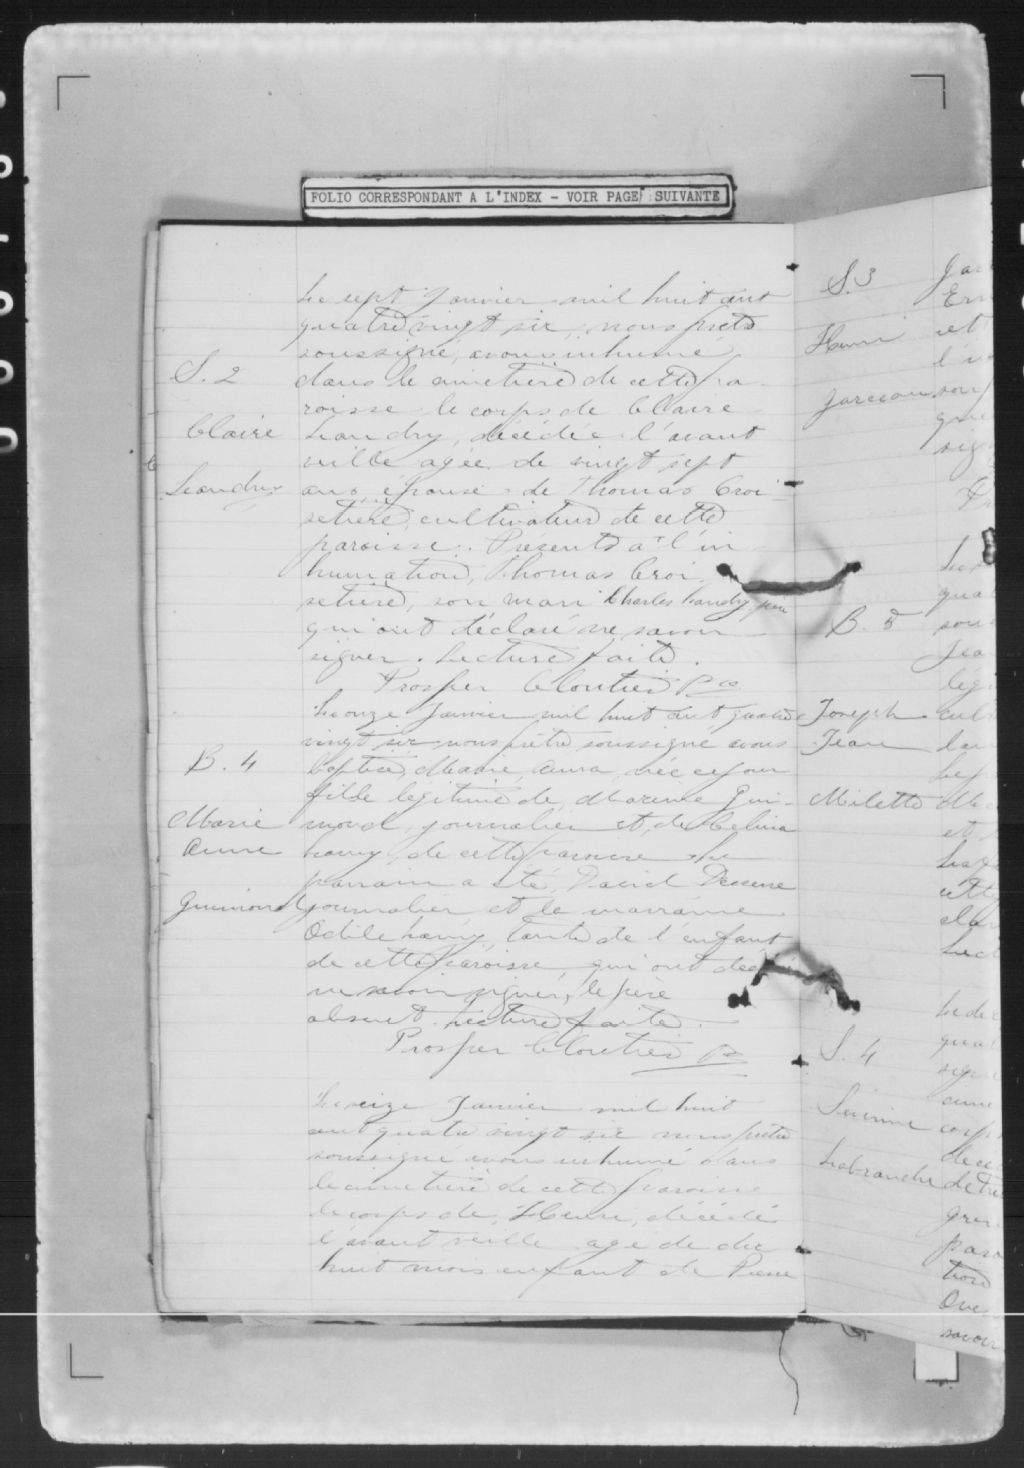 FOLIO CORRESPONDANT A L'INDEX - VOIR PAGE SUIVANTE
S. 2
Claire
Landry
Le sept Janvier mil huit cent
quatre vingt six, nous prêtre
soussigné, avons inhumé
dans le cimetière de cette pa
roisse le corps de Claire
Landry, décédée l'avant
veille agée de vingt sept
ans, épouse de Thomas Croi
setière, cultivateur de cette
paroisse. Présents à l'in
humation, Thomas Croi
setière, son mari Charles Landry père
qui ont déclaré ne savoir
signer. Lecture faite.
Prosper Cloutier Ptre
B. 4
Marie
Anna
Guimond
Le onze Janvier mil huit cent quatre
vingt six nous prêtre soussigné avons
baptisé, Marie Anna, née ce jour
fille légitime de Maxime Gui-
mond, journalier et de Celina
Lamy, de cette paroisse. Le
parrain a été, David
journalier et la marraine
Odile Lamy, tante de l'enfant
de cette paroisse, qui ont
ne savoir signer, le père
absent. Lecture faite.
Prosper Cloutier Ptre
Le seize Janvier mil huit
cent quatre vingt six nous prêtre
soussigné avons inhumé dans
le cimetière de cette paroisse
le corps de, Henri, décédé
l'avant veille agé de dix
huit mois enfant de Pierre
S. 3
Henri
Garceau
B. 5
Joseph
Jean
Milette
S. 4
Labranche